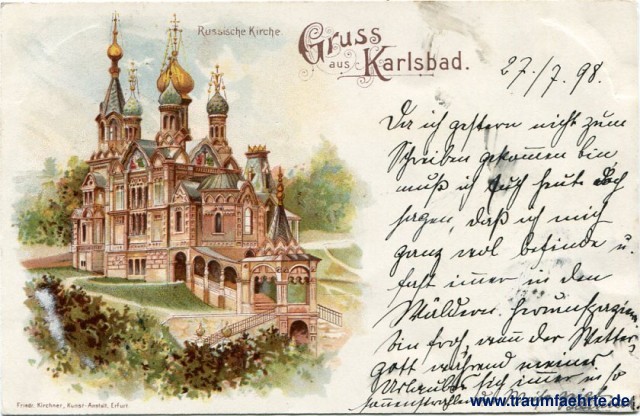 Russische Kirche.
Gruss
aus Karlsbad.
27./7. 98.
Da ich gestern nicht zum
Schreiben gekommen bin,
muß ich Euch heute doch
sagen, daß ich mich
ganz wol befinde u.
fast immer in den
Wäldern herumspaziere
bin froh, wenn der Wetter-
gott während meines
Urlaubes sich immer in so
Friedr. Kirchner, Kunst-Anstalt, Erfurt.
www.traumfaehrte.de